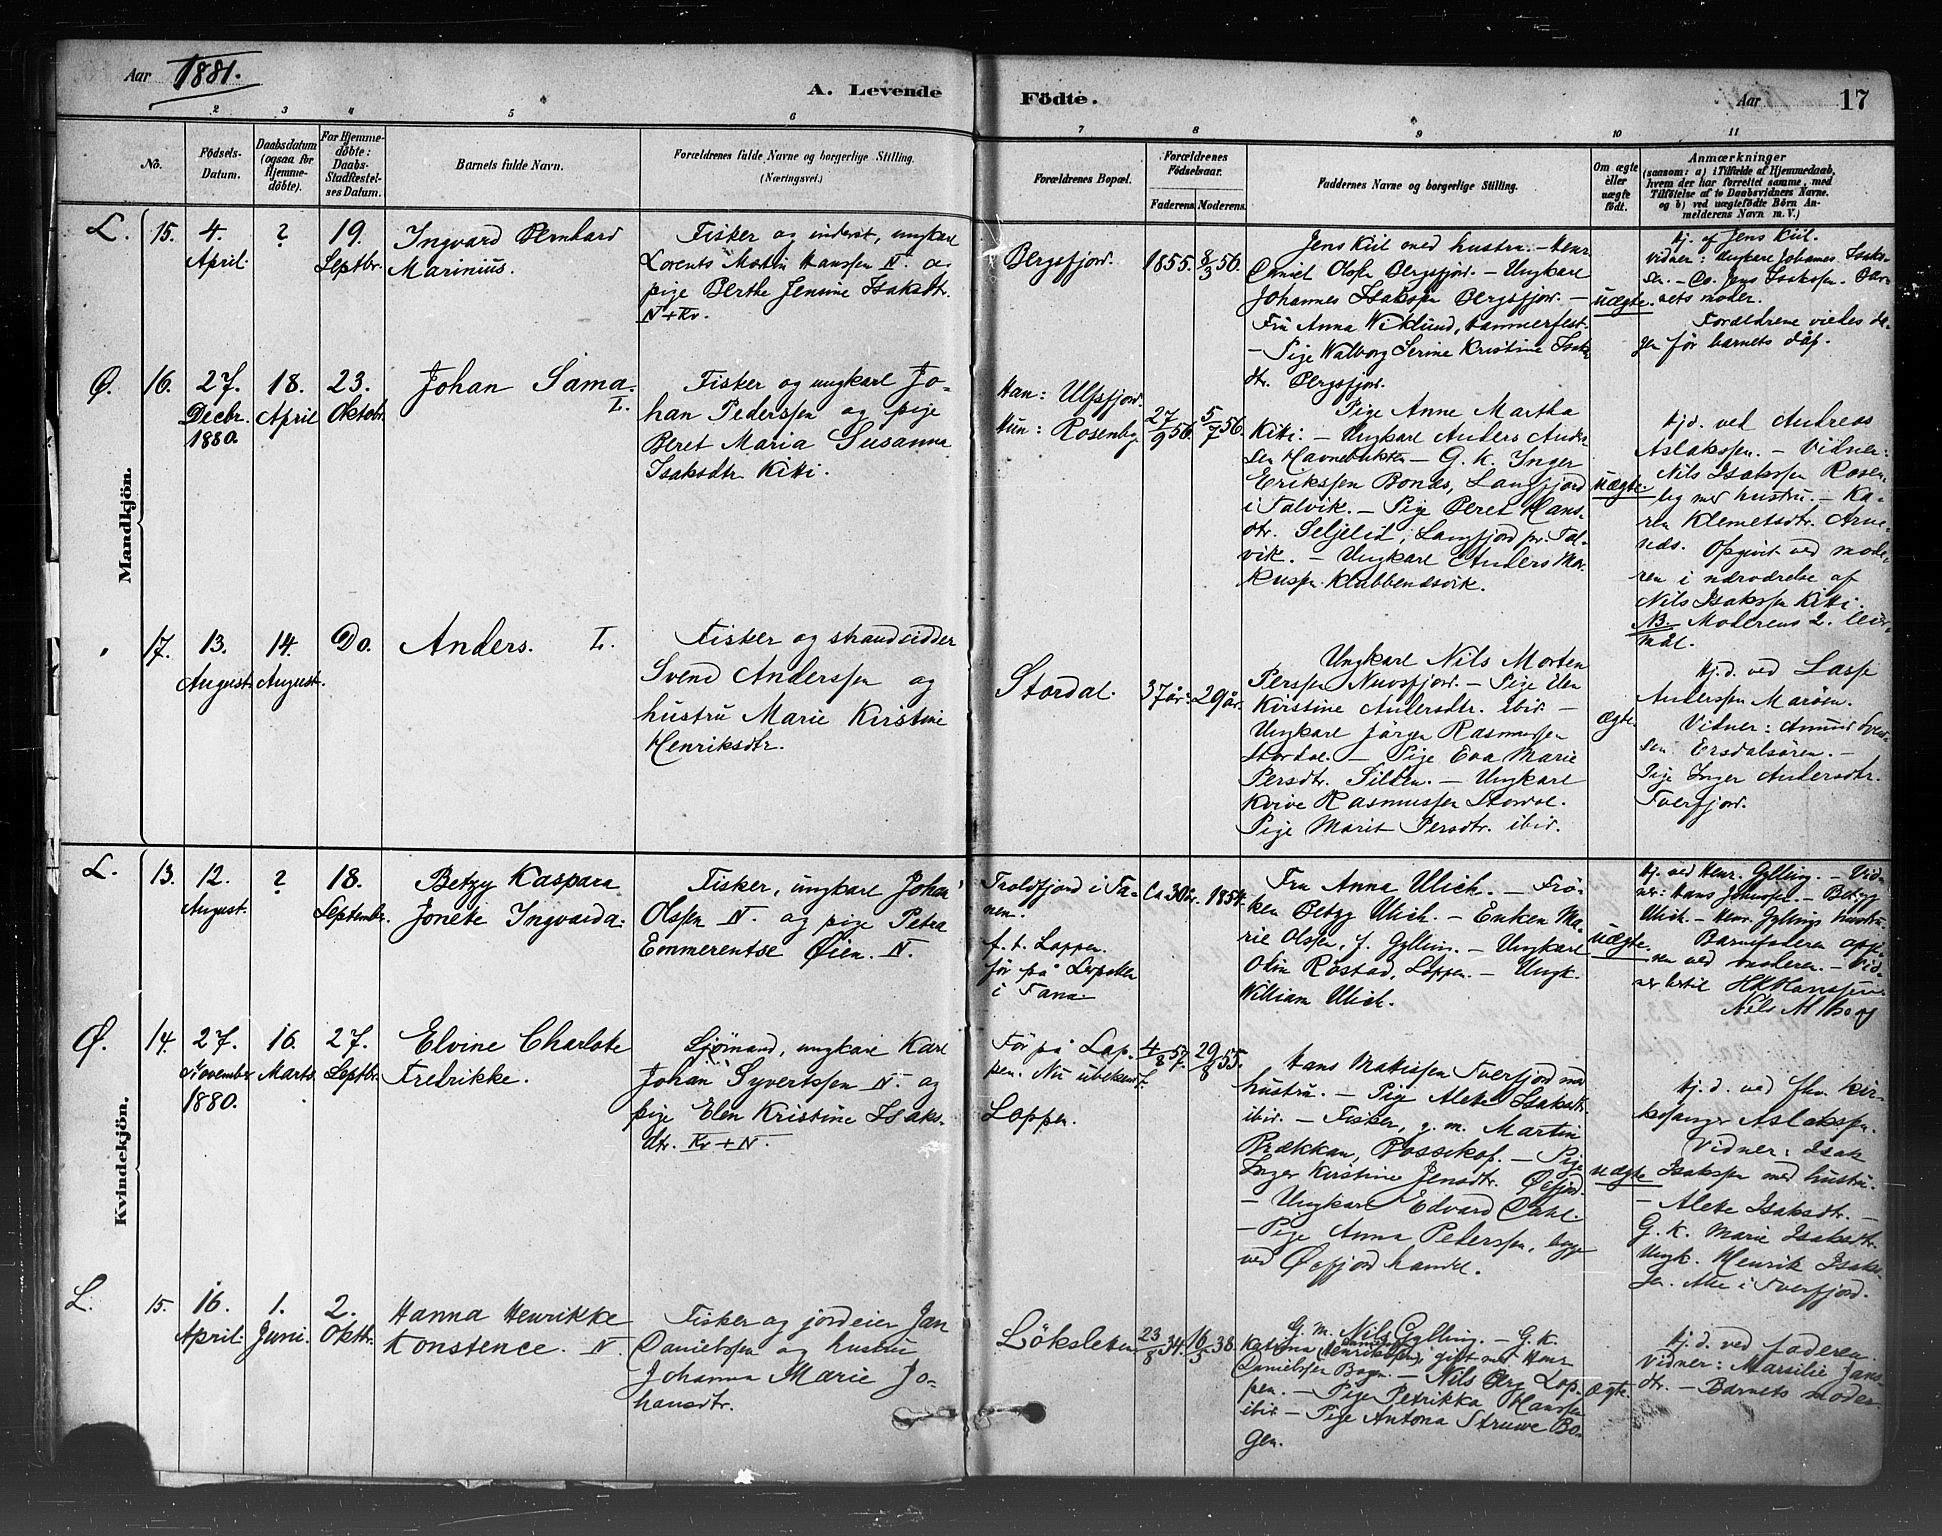 Aar 1881.
A. Levende
Födte.
Aar
17
2 3 4 5 6 7 8 9 10 11
No.
Födsels-
Datum.
Daabsdatum
(ogsaa for
Hjemme-
döbte).
For Hjemme-
döbte:
Daabs-
Stadfæstel-
ses Datum.
Barnets fulde Navn.
Forældrenes fulde Navne og borgerlige Stilling.
(Næringsvei.)
Forældrenes Bopæl.
Forældrenes
Födselsaar.
Faderens. Moderens.
Faddernes Navne og borgerlige Stilling.
Om ægte
eller
uægte
födt.
Anmærkninger
(saasom: a) i Tilfælde af Hjemmedaab,
hvem der har forrettet samme, med
Tilföielse af to Daabsvidners Navne.
og b) ved uægtefödte Börn An-
melderens Navn m. V.)
Mandkjön.
L. 15.
4.
April
?
19.
Septbr.
Ingvard Bernhard
Marinius.
Fisker og inderst, ungkarl
Lorents Martin Hanssen N. og
pige Berthe Jensine Isaksdtr.
N + Kv.
Bergsfjord.
1855.
8/3 56.
Jens Kiil med hustru. – Henr.
Daniel Olsen Bergsfjord. – Ungkarl
Johannes Isaksen Bergsfjord. –
Fru Anna Wiklund, Hammerfest.
– Pige Walborg Serine Kristine Isaks-
dtr. Bergsfjord.
uægte.
Hj. af Jens Kiil.
Vidner: Ungkarl Johannes Isak-
sen. – Do. Jens Isaksen. Bar-
nets moder.
Forældrene viedes da-
gen før barnets dåp.
Ø. 16.
27.
Decbr.
1880.
18.
April
23.
Oktobr.
Johan Sama
L.
Fisker og ungkarl Jo-
han Pederssen og pige
Beret Maria Susanna
Isaksdtr Kitti.
Han: Ulfsfjord.
Hun: Rosenby.
27/9 56.
5/7 56.
Pige Anne Martha
Kitti. – Ungkarl Anders Ander-
sen Havnebukten – G. K. Inger
Erikssen Bonas, Langfjord
i Talvik. – Pige Beret Hans-
dtr. Seljelid, Langfjord pr. Tal-
vik. – Ungkarl Anders Mar-
kussen Klubbenesvik.
uægte.
Hjd. ved Andreas
Aslakssen. – Vidner:
Nils Isakssen Rosen-
by med hustru. – Ka-
ren Klemetsdtr. Arne-
næs. Opgivet ved mode-
ren i nærværelse af
Nils Isakssen Kitti.
NB. Moderens 2. leier-
mål.
17.
13.
August.
14.
August.
Do.
Anders. L.
Fisker og strandsidder
Svend Anderssen og
hustru Marie Kirstine
Henriksdtr.
Stordal.
37 år.
29 år.
Ungkarl Nils Morten
Perssen Nuvsfjord. – Pige Elen
Kirstine Andersdtr. ibid. –
Ungkarl Jörgen Rasmussen
Stordal. – Pige Eva Marie
Persdtr. Silden. – Ungkarl
Kvive Rasmussen Stordal.
Pige Marit Persdtr. ibid.
ægte.
Hj.d. ved Lasse
Anderssen Marøen.
Vidner: Amund Sven-
sen Ersdalsøren. –
Pige Inger Andersdtr.
Tverfjord.
Kvindekjön.
L. 13.
12.
August.
?
18.
Septembr.
Betzy Kaspara
Jonette Ingvarda.
Fisker, ungkarl Johan
Olssen N. og pige Petra
Emmerentse Øien. N.
Troldfjord i Ta-
nen.
f. t. Loppen.
før på Lerpollen
i Tana
Ca 30 år.
1854.
Fru Anna Ulich. – Frø-
ken Betzy Ulich. – Enken Ma-
rie Olssen, f. Gylling. – Ungkarl
Olin Røstad, Loppen. – Ungk.
William Ulich.
uægte.
Hj. ved Henr. Gylling. – Vid-
ner: Hans Johnsen. – Betzy
Ulich. – Henr. Gyllings hustru.
Barnefaderen opgi-
ven ved moderen. – Vid-
ner hertil HK Hanssen
Nils M Borg
Ø. 14.
27.
November
1880.
16.
Marts.
27.
Septbr.
Elvine Charlotte
Fredrikke.
Sjømand, ungkarl Karl
Johan Syvertssen N. og
pige Elen Kristine Isaks-
dtr. Kv + N.
Før på Lop-
pen. Nu ubekendt.
Loppen.
4/8 57.
29/8 55.
Hans Mathisen Tverfjord med
hustru. – Pige Alete Isaksdtr.
ibid. – Fisker, g. m. Martin
Brækkan, Bossekop. – Pige
Inger Kirstine Jensdtr. Øxfjord.
– Ungkarl Edvard Dahl.
– Pige Anna Pederssen, begge
ved Øxfjord handel.
uægte
Hj.d. ved fhv. kir-
kesanger Aslakssen.
Vidner: Isak
Isakssen med hustru.
– Alete Isaksdtr. –
G. K. Marie Isaksdtr.
Ungk. Henrik Isaks-
sen. Alle i Tverfjord.
L. 15.
16.
April.
1.
Juni.
2.
Oktbr.
Hanna Henrikke
Konstence. N.
Fisker og jordeier Jan
Danielssen og hustru
Johanna Marie Jo-
hansdtr.
Lökslеtten
23/8 34.
16/3 38.
G. M. Nils Gylling. – G. K.
Katrina (Henriksen), gift med Henr
Danielssen Bogen. – Nils Berg Lop-
pen. – Pige Petrikka Hanssen
ibid. – Pige Antona Struwe Bo-
gen.
ægte.
Hj.d. ved faderen.
Vidner: Marsilie Jans-
dtr. – Barnets moder.